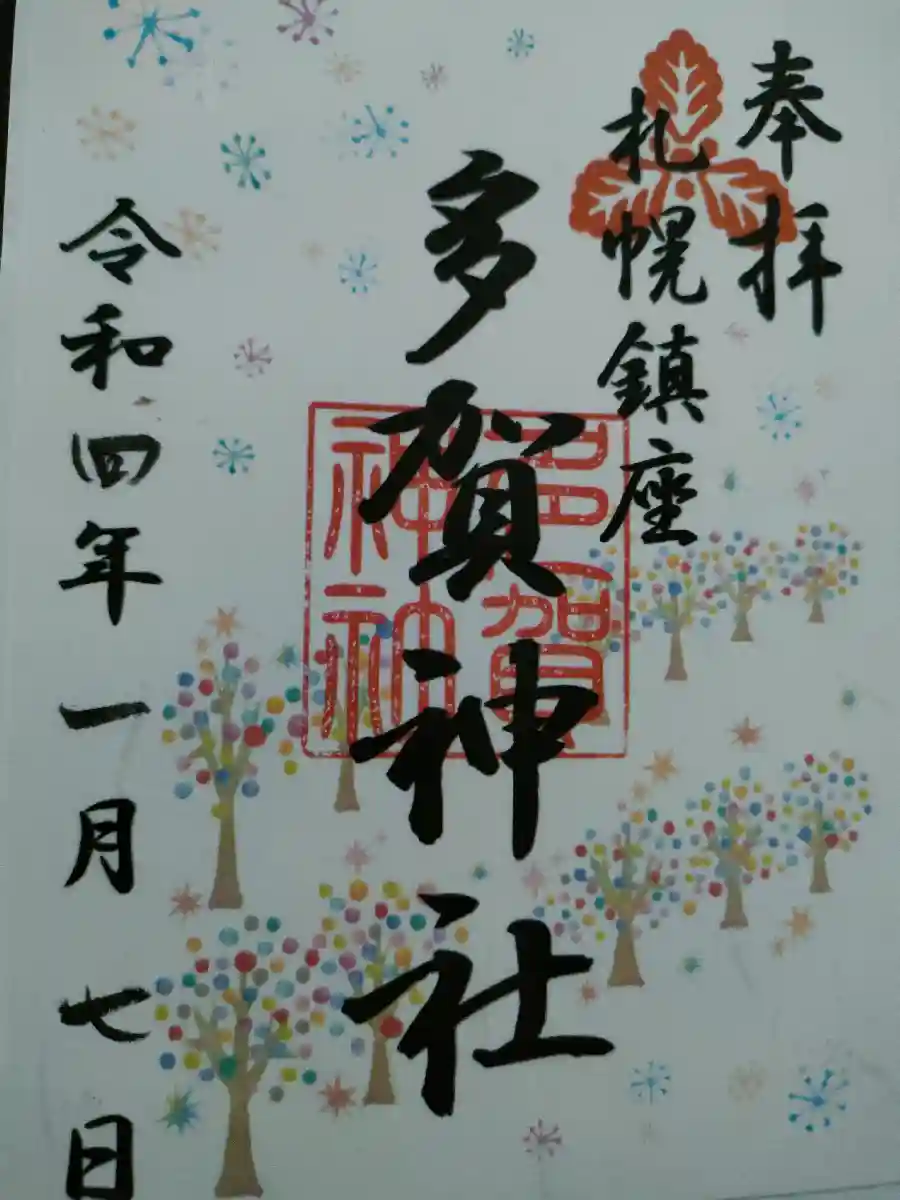 奉拝
札幌鎮座
多賀神社
多賀
神社
令和四年一月七日